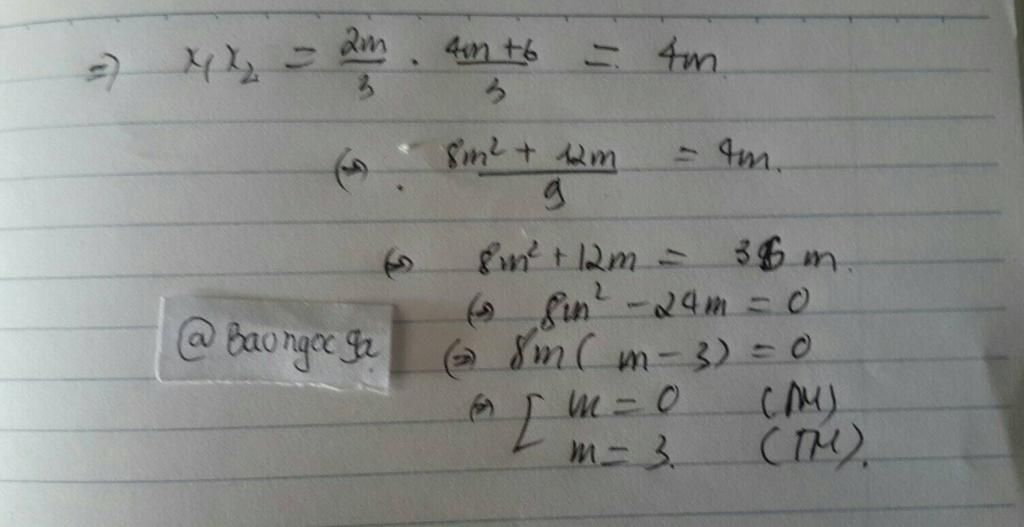 => x₁x₂ = 2m/3 . 4m+6/3 = 4m
(=> . 8m² + 12m/9 = 4m.
<=> 8m² + 12m = 36 m.
<=> 8m² - 24m = 0
@Baongoc 9a. <=> 8m( m - 3) = 0
<=> [ m = 0 (TM)
m = 3. (TM).